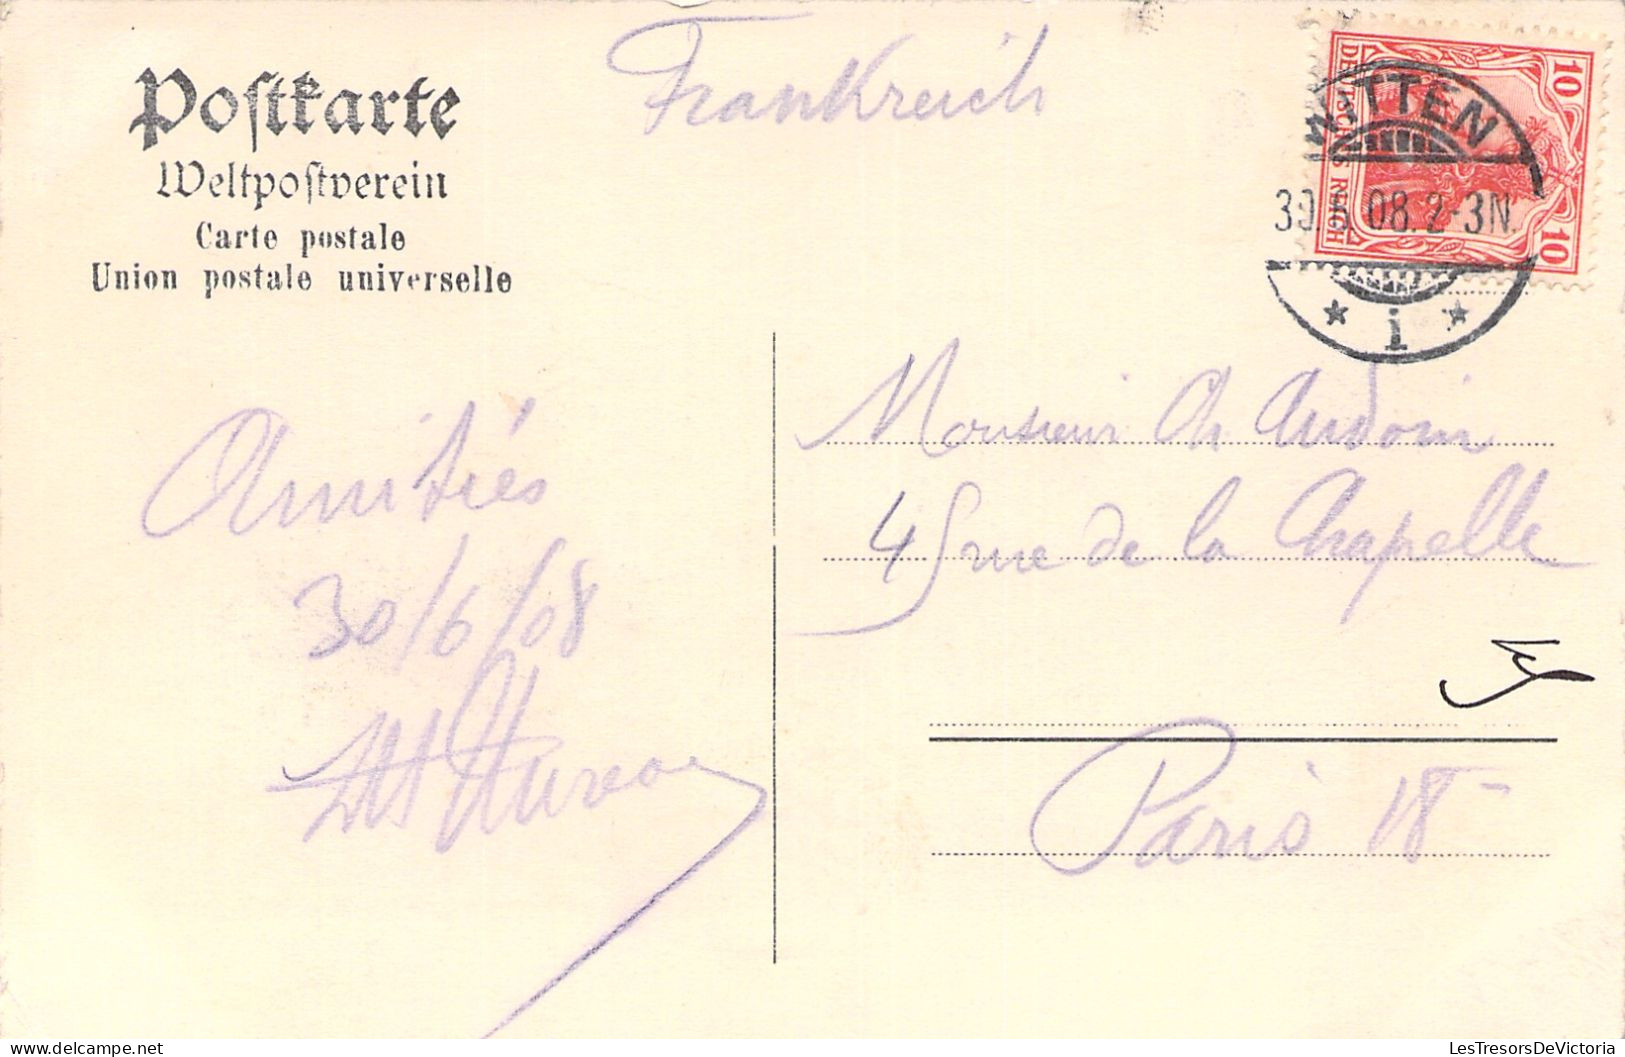 Postkarte
Weltpostverein
Carte postale
Union postale universelle
Frankreich
10 DEUTSCHES REICH 10
WITTEN
30.6.08.2-3N.
* i *
Amitiés
30/6/08
Monsieur Ch Audoin
45 rue de la Chapelle
Paris 18
delcampe.net
LesTresorsDeVictoria